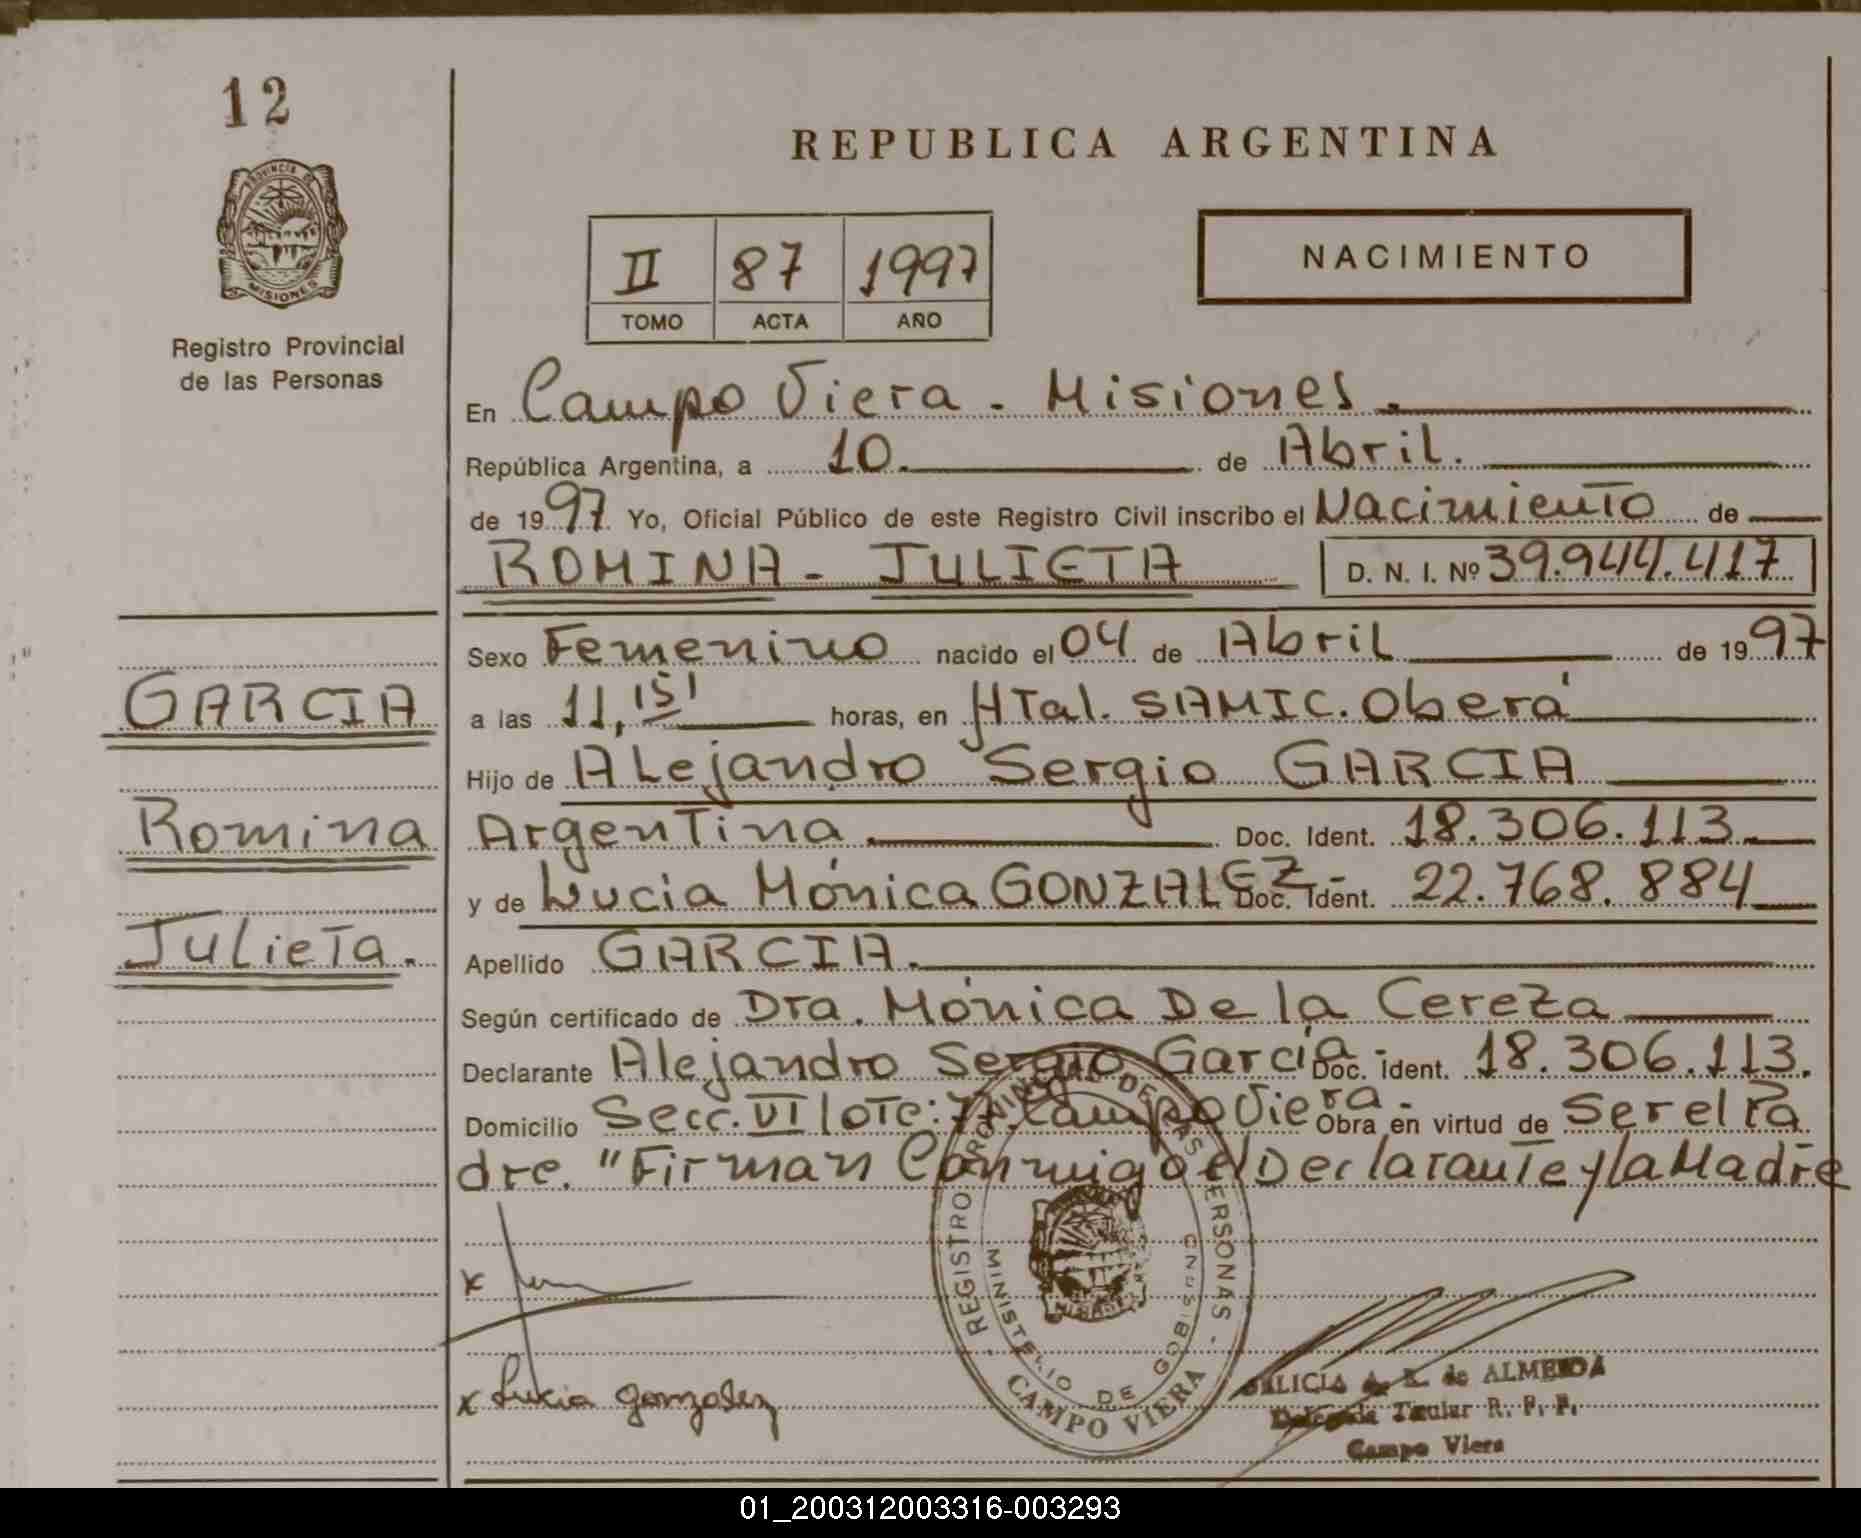 12
PROVINCIA DE
MISIONES
Registro Provincial
de las Personas
REPUBLICA ARGENTINA
II 87 1997
TOMO ACTA AÑO
NACIMIENTO
En Campo Viera - Misiones.
República Argentina, a 10. de Abril.
de 1997. Yo, Oficial Público de este Registro Civil inscribo el Nacimiento de
ROMINA - JULIETA D. N. I. Nº 39.944.417
Sexo Femenino nacido el 04 de Abril de 1997
a las 11,15' horas, en HTal. SAMIC. Oberá
Hijo de Alejandro Sergio GARCIA
Argentina Doc. Ident. 18.306.113
y de Lucia Mónica GONZALEZ - Doc. Ident. 22.768.884
Apellido GARCIA.
Según certificado de Dra. Mónica De la Cereza
Declarante Alejandro Sergio García - Doc. Ident. 18.306.113.
Domicilio Secc. VI lote: 77. Campo Viera - Obra en virtud de Ser el Pa
dre. "Firman Conmigo el Declarante y la Madre
GARCIA
Romina
Julieta.
x
x Lucia Gonzalez
REGISTRO PROVINCIAL DE LAS PERSONAS
MINISTERIO DE GOBIERNO
MISIONES
CAMPO VIERA
GALICIA A. E. de ALMEIDA
Delegada Titular R. P. P.
Campo Viera
01_200312003316-003293